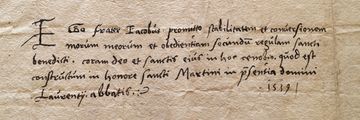 EGo frater Iacobus promitto stabilitatem et conversionem
morum meorum et obedientiam secundu regulam sancti
benedicti . coram deo et sanctis eius in hoc cenobio, quod est
constructum in honore sancti Martini in psentia domini
Laurentij abbatis .